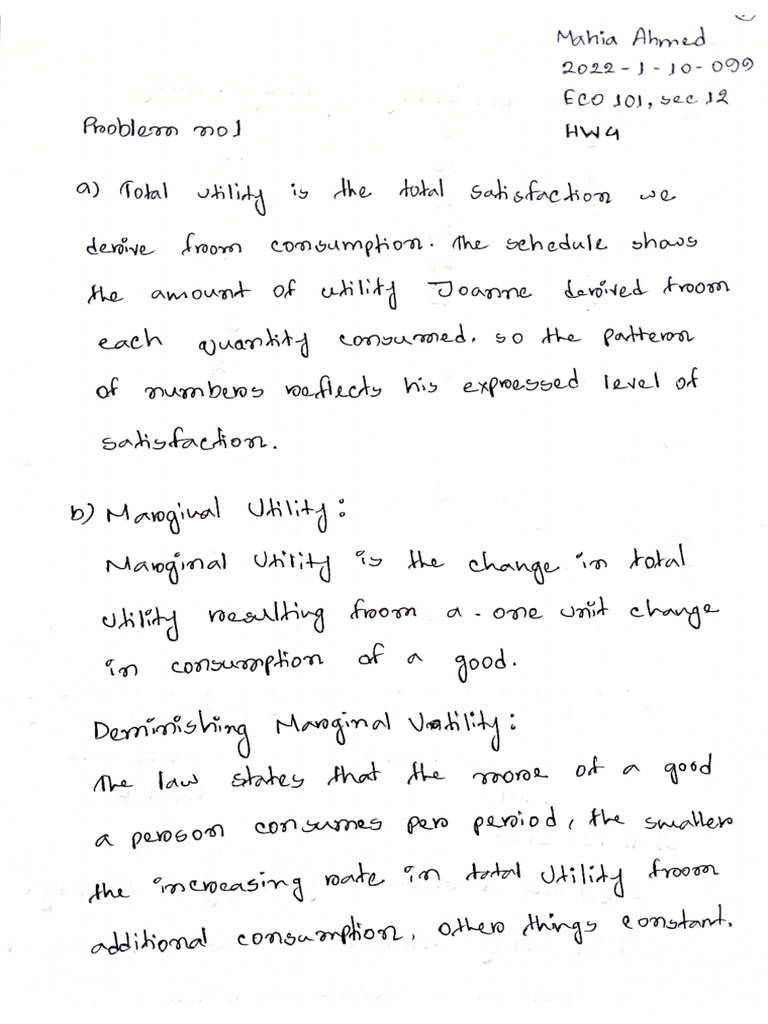 Mahia Ahmed
2022-1-10-099
ECO 101, sec 12
HW4
Problem no 1
a) Total utility is the total satisfaction we
derive from consumption. The schedule shows
the amount of utility Joanne derived from
each quantity consumed. so the pattern
of numbers reflects his expressed level of
satisfaction.
b) Marginal Utility:
Marginal Utility is the change in total
utility resulting from a one unit change
in consumption of a good.
Deminishing Marginal Utility:
The law states that the more of a good
a person consumes per period, the smaller
the increasing rate in total utility from
additional consumption, other things constant.